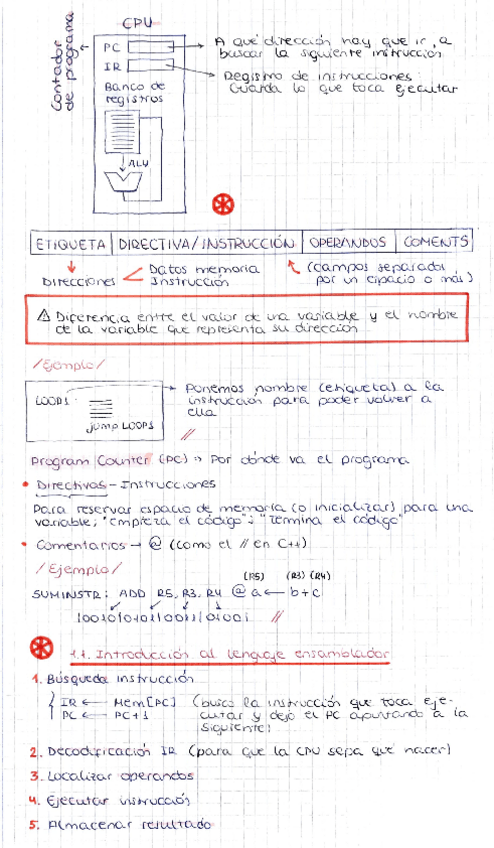 CPU
Contador de programa
PC
A qué dirección hay que ir a
buscar la siguiente instrucción
IR
Registro de instrucciones
Guarda lo que toca ejecutar
Banco de
registros
ALU
ETIQUETA | DIRECTIVA/INSTRUCCIÓN | OPERANDOS | COMENTS
Direcciones
Datos memoria
Instrucción
(campos separados
por un espacio o más)
⚠ Diferencia entre el valor de una variable y el nombre
de la variable que representa su dirección
/Ejemplo/
LOOPS
jump LOOPS
Ponemos nombre (etiqueta) a la
instrucción para poder volver a
ella //
Program Counter (PC) » Por dónde va el programa
• Directivas - Instrucciones
Para reservar espacio de memoria (o inicializar) para una
variable; "empieza el código"; "termina el código"
• Comentarios → @ (como el // en C++)
/Ejemplo/
(R5) (R3) (R4)
SUMINSTR: ADD R5, R3, R4 @ a ← b+c
//
1.1. Introducción al lenguaje ensamblador
1. Búsqueda instrucción
IR ← Mem[PC] (busco la instrucción que toca eje-
PC ← PC+1 cutar y dejo el PC apuntando a la
siguiente)
2. Decodificación IR (para que la CPU sepa qué hacer)
3. Localizar operandos
4. Ejecutar instrucción
5. Almacenar resultado